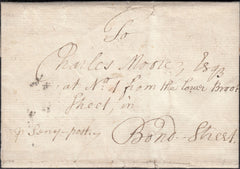 To
Charles Moore, Esqr.
at No. 1 from the lower Brook
Street, in
p Penny post. Bond-Street.